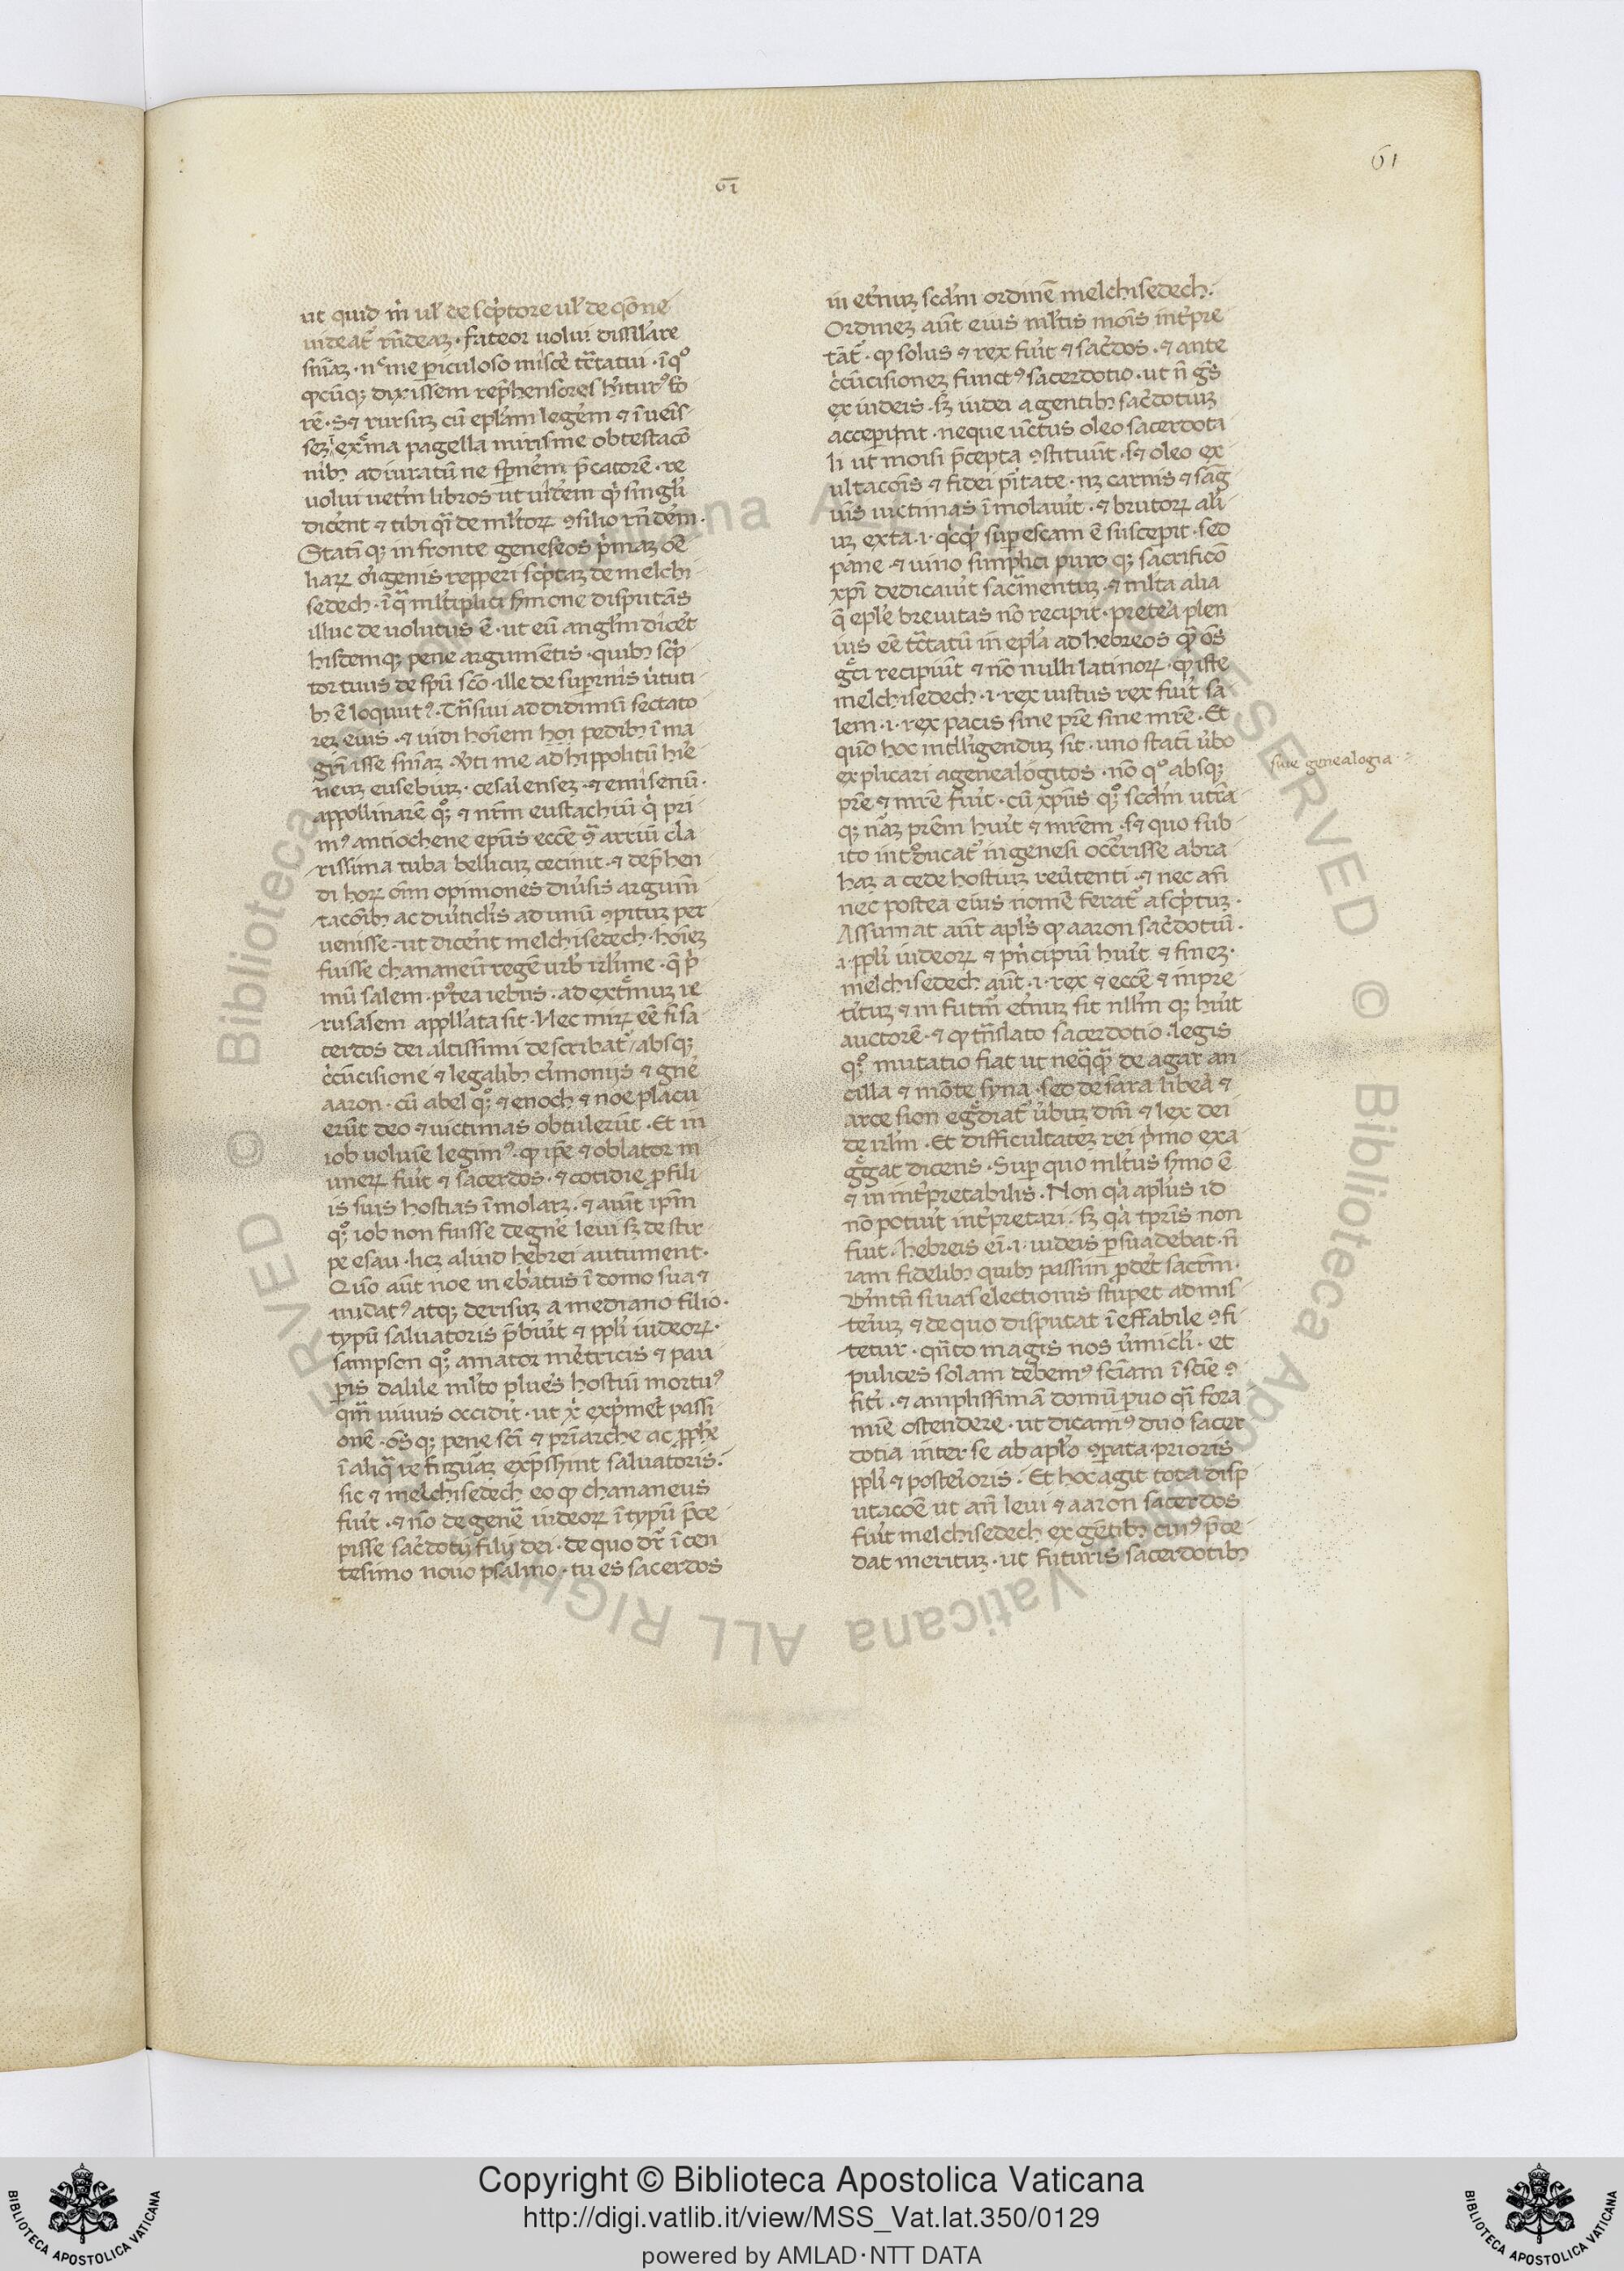 61
61
ut quid m̄ ul̄ de scp̄tore ul̄ de q̄one
uideat᷑ rn̄deaꝫ · fateor uolui dissil̄are
sn̄iaꝫ · nᶜ me piculoso misce᷑ tc̄tatui · ī qͦ
qͦcūqꝫ dixissem rep̄hensores h̄itur᷒ fo
re᷑ · sꝫ rursuꝫ cū ep̄lam lege᷑m ⁊ ī ueīs
seꝫ ī ext̄ma pagella miris me obtestacō
nibꝫ adiuratū ne sp̄ne᷑m p̄catorē · re
uolui uet᷑m libros ut uid᷑em qͥd singl̄i
dice᷑nt ⁊ tibi qd̄ de ml̄torꝝ ꝯsilio rn̄de᷑m ·
Statī qꝫ in fronte geneseos p̄maꝫ oē
liarꝝ oͥgenis repperi scp̄taꝫ de melchi
sedech · ī qͣ ml̄tiplici s᷑mone disputās
illuc deuolutus ē · ut eū angl̄m dice᷑t
hisdemqꝫ pene argumētis · quibꝫ scp̄
tor tuus de sp̄u sc̄o · ille de supernis u᷑tuti
bꝫ ē loquut᷒ · Tn̄siui ad didimū sectato
reꝫ eius · ⁊ uidi ho᷑iem hoi pedibꝫ ī ma
grī isse sn̄iaꝫ · U᷑ti me ad hippolitū hire
neuꝫ eusebiuꝫ · cesariensez · ⁊ emisenū ·
appollinarē qꝫ ⁊ nrm̄ eustachiū qͥ pri
m᷒ antiochene ep̄us ecc̄e ꝯͣ arriū cla
rissima tuba bellicuꝫ cecinit · ⁊ dep̄hen
di horꝝ oīm opiniones diu᷑sis argum̄
tacōibꝫ ac diu᷑ticl̄is ad unū ꝯpituꝫ per
uenisse · ut dice᷑nt melchisedech · hoīeꝫ
fuisse chananeū regē urb᷑ irl̄ime · q̄ p̄
mū salem · pt᷑ea iebus · ad ext̄muꝫ ie
rusalem appll̄ata sit · Nec mirꝝ eē si sa
cerdos dei altissimi describat᷑ absqꝫ
cc̄ūcisione ⁊ legalibꝫ ci᷑monijs ⁊ gne᷑
aaron · cū abel qꝫ ⁊ enoch ⁊ noe placu
erūt deo ⁊ uictimas obtulerūt · Et in
iob uoluīe legim᷒ · qͦ ip̄e ⁊ oblator m
unerꝝ fuit ⁊ sacerdos · ⁊ cotidie p̱ fili
is suis hostias īmolarꝫ · ⁊ aiunt ip̄m
qꝫ iob non fuisse de gne᷑ leui sꝫ de stir
pe esau · licꝫ aliud hebrei autument ·
Quō aūt noe inebͥatus ī domo sua ⁊
nudat᷒ atqꝫ derisuꝫ a mediano filio ·
typū saluatoris p̄buit ⁊ ppl̄i iudeorꝝ ·
sampson qꝫ amator me᷑tricis ⁊ pau
pis dalile ml̄to plues hostiū mortu᷒
qm̄ uiuus occidit · ut x̄ exp̄me᷑t passi
onē · oēs qꝫ pene sc̄i ⁊ pri̅arche ac pph̄e
ī aliqͣ re figuraꝫ exp̄ss᷑int saluatoris ·
sic ⁊ melchisedech eo qͦ chananeus
fuit · ⁊ nō de genē iudeorꝝ ī typū p̄ce
pisse sac᷑dotij filij dei · de quo dr̄ ī cen
tesimo nouo psalmo · tu es sacerdos
in et᷑nuꝫ scd̄m ordinē melchisedech ·
Ordineꝫ aūt eius ml̄tis mois int᷑pre
tāt᷑ · qͦ solus ⁊ rex fuit ⁊ sac᷑dos · ⁊ ante
cc̄ūcisioneꝫ funct᷒ sacerdotio · ut n̄ gēs
ex iudeis · sꝫ iudei a gentibꝫ sac᷑dotiuꝫ
acceperint · neque ūctus oleo sacerdota
li ut moisi p̄cepta ꝯstituūt · sꝫ oleo ex
ultacōis ⁊ fidei pi᷑tate · nꝫ carnis ⁊ sāg
uīs uictimas īmolauit · ⁊ brutorꝝ ali
uꝫ exta · i · qͥcqͥd sup escam ē suscepit · sed
pane ⁊ uino simplici puro qꝫ sacrificō
xp̄i dedicauit sacm̄entuꝫ · ⁊ ml̄ta alia
q̄ ep̄le breuitas nō recipit · prete᷑a plen
ius eē tc̄tatū in ep̄la ad hebreos qͣ oēs
gͤci recipiūt ⁊ nō nulli latinorꝝ · qͦ iste
melchisedech · i · rex iustus rex fuit sa
lem · i · rex pacis sine pr̄e sine mr̄e · Et
quō hoc intelligenduꝫ sit · uno statī ūbo
explicari agenealogitos · nō qͦ absqꝫ
pr̄e ⁊ mr̄e fuit · cū xp̄us qꝫ scd̄m utrā
qꝫ nāꝫ pr̄em h̄uit ⁊ mr̄em · sꝫ quo sub
ito intͦducat᷑ in genesi occͥrisse abra
haꝫ a cede hostiuꝫ reu᷑tenti · ⁊ nec an̄
nec postea eius nomē ferat᷑ ascp̄tuꝫ ·
Assumat aūt apl̄s qͦ aaron sac᷑dotiū ·
i · ppl̄i iudeorꝝ ⁊ pn̄cipiū h̄uit ⁊ fineꝫ ·
melchisedech aūt · i · rex ⁊ ecc̄e ⁊ in pre
te᷑ituꝫ ⁊ in futm̄ et᷑nuꝫ sit nll̄m qꝫ h̄uit
auctorē · ⁊ qͦ tn̄slato sacerdotio · legis
qꝫ mutatio fiat ut neqͣqͣ de agar an
cilla ⁊ mōte syna · sed de sara libe᷑a ⁊
arce sion egͤdiat᷑ ūbuꝫ dn̄i ⁊ lex dei
de irl̄m · Et difficultateꝫ rei p̄mo exa
gͤgat dicens · Sup quo ml̄tus s᷑mo ē
⁊ inint᷑pretabilis · Non qͥa apl̄us id
nō potuit int᷑pretari · sꝫ qͥa tpr̄is non
fuit · hebreis eī · i · iudeis p̱suadebat · n̄
iam fidelibꝫ quibꝫ passim p̱de᷑t sacm̄ ·
U᷑mtn̄ si uas electionis stupet ad mis
te᷑iuꝫ ⁊ de quo disputat īeffabile ꝯfi
tetur · qn̄to magis nos u᷑micl̄i · et
pulices solam debem᷒ sci᷑am īsci᷑e ꝯ
fiti᷑ · ⁊ amplissimā domū p̱uo qͣi fora
mīe ostendere · ut dicam᷒ duo sacer
dotia inter se ab apl̄o ꝯparata · prioris
ppl̄i ⁊ posterioris · Et hoc agit tota disp
utacōe ut an̄ leui ⁊ aaron sacerdos
fuit melchisedech ex gētibꝫ cui᷒ p̄ce
dat merituꝫ · ut futuris sacerdotibꝫ
siue genealogia ·
Copyright © Biblioteca Apostolica Vaticana
http://digi.vatlib.it/view/MSS_Vat.lat.350/0129
powered by AMLAD·NTT DATA
BIBLIOTECA APOSTOLICA VATICANA
BIBLIOTECA APOSTOLICA VATICANA